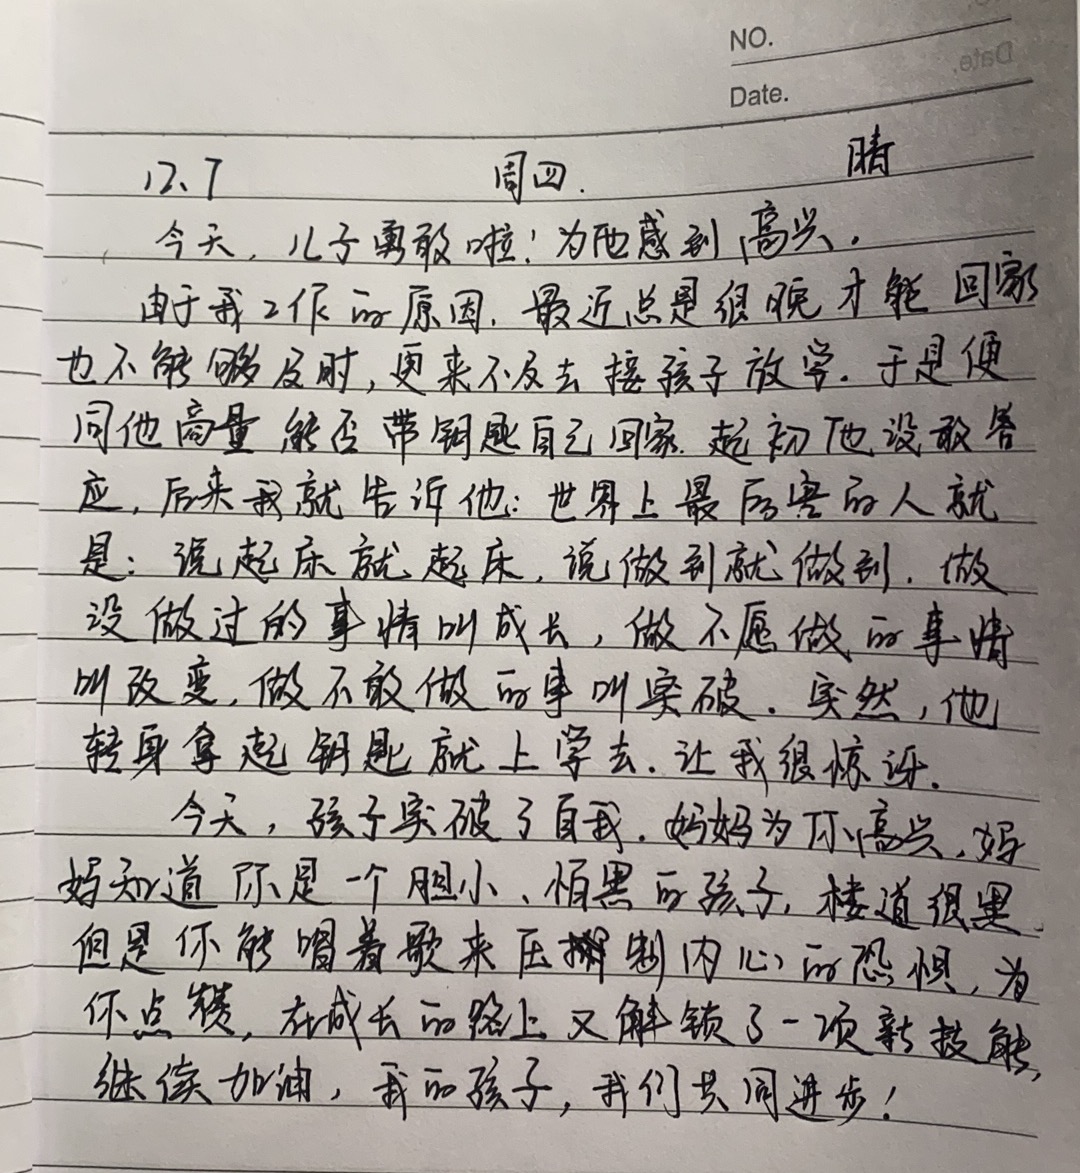 NO.
Date.
12.7 周四. 晴
今天，儿子勇敢啦！为他感到高兴.
由于我工作的原因.最近总是很晚才能回家
也不能够及时,更来不及去接孩子放学.于是便
同他商量能否带钥匙自己回家.起初他没敢答
应,后来我就告诉他:世界上最厉害的人就
是:说起床就起床,说做到就做到.做
没做过的事情叫成长,做不愿做的事情
叫改变,做不敢做的事叫突破.突然,他
转身拿起钥匙就上学去.让我很惊讶.
今天,孩子突破了自我.妈妈为你高兴,妈
妈知道你是一个胆小、怕黑的孩子,楼道很黑,
但是你能唱着歌来压制内心的恐惧,为
你点赞,在成长的路上又解锁了一项新技能,
继续加油,我的孩子,我们共同进步!